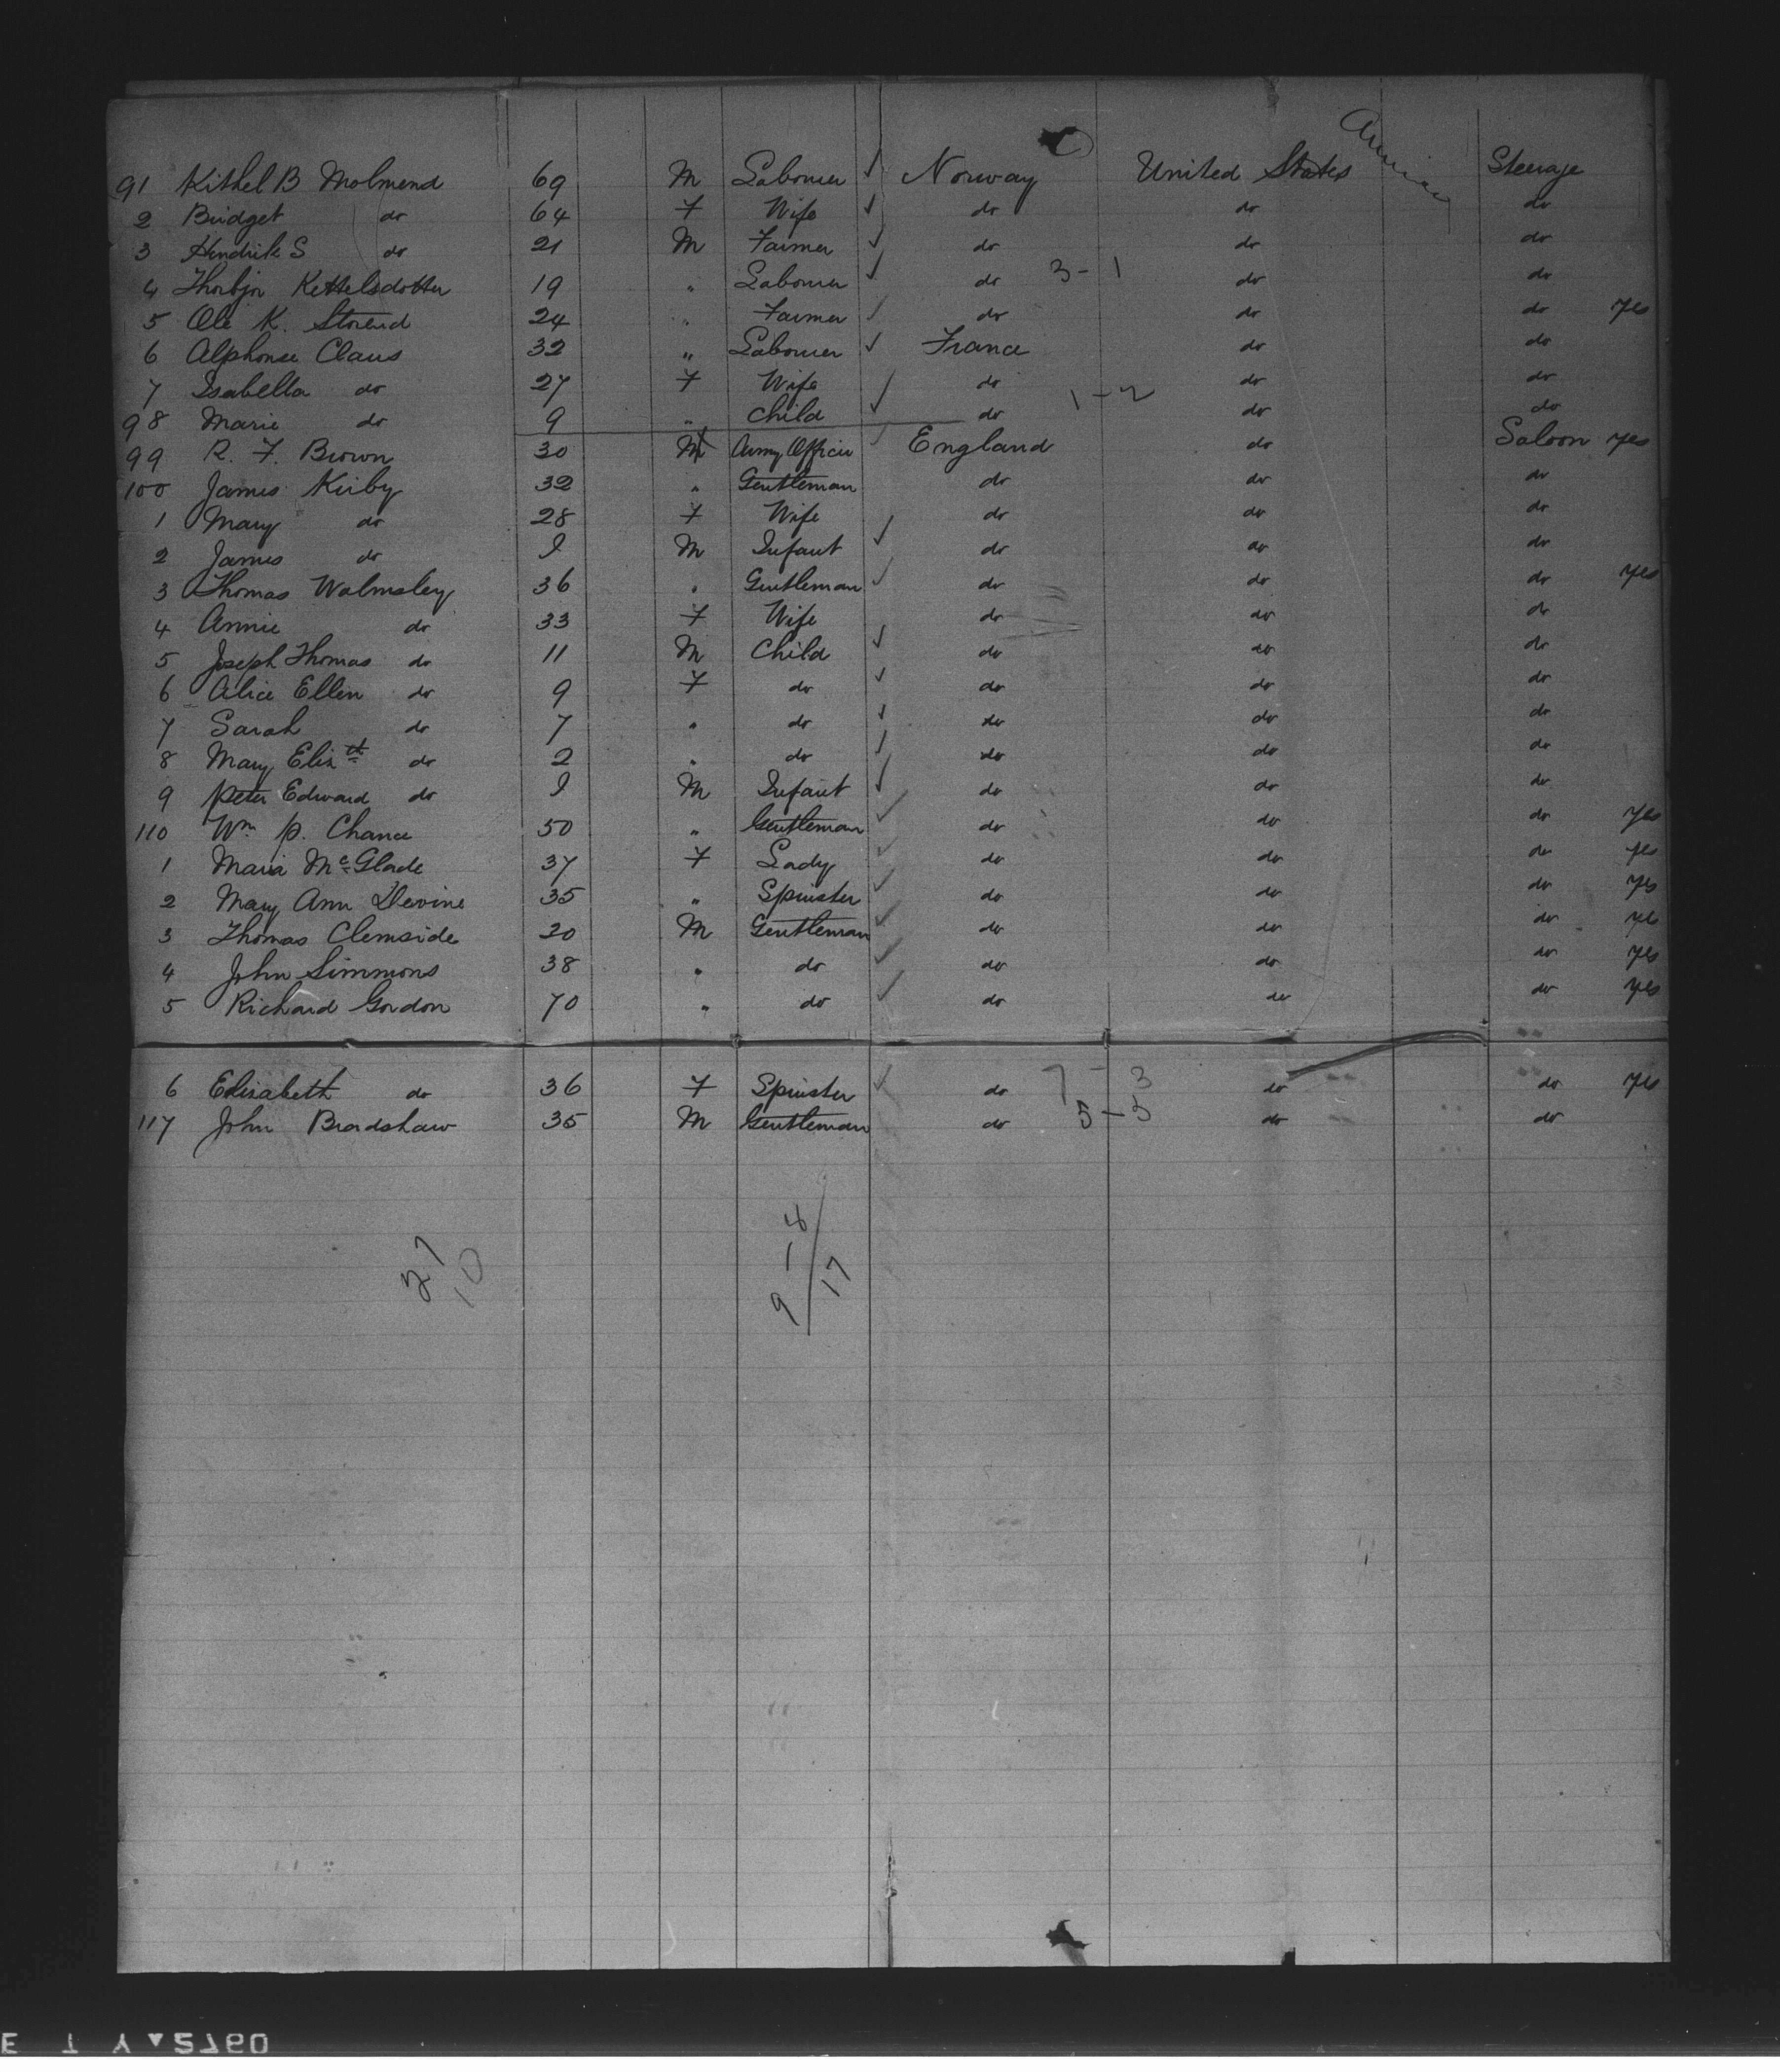 91 Kithel B Molmend 69 M Labourer ✓ Norway United States Steerage
2 Bridget do 64 F Wife ✓ do do do
3 Hendrik S do 21 M Farmer ✓ do do do
4 Thorbjor Kettelsdotter 19 " Labourer ✓ do 3-1 do do
5 Ole K. Storend 24 " Farmer ✓ do do do Yes
6 Alphonse Claus 32 " Labourer ✓ France do do
7 Isabella do 27 F Wife do do do
98 Marie do 9 " Child ✓ do 1-2 do do
99 R. F. Brown 30 M Army Officer ✓ England do Saloon Yes
100 James Kirby 32 " Gentleman do do do
1 Mary do 28 F Wife do do do
2 James do I M Infant ✓ do do do
3 Thomas Walmsley 36 " Gentleman ✓ do do do Yes
4 Annie do 33 F Wife do do do
5 Joseph Thomas do 11 M Child ✓ do do do
6 Alice Ellen do 9 F do ✓ do do do
7 Sarah do 7 " do ✓ do do do
8 Mary Elizth do 2 " do ✓ do do do
9 Peter Edward do I M Infant ✓ do do do
110 Wm P. Chance 50 " Gentleman ✓ do do do Yes
1 Maria McGlade 37 F Lady ✓ do do do Yes
2 Mary Ann Devine 35 " Spinster ✓ do do do Yes
3 Thomas Clemside 20 M Gentleman ✓ do do do Yes
4 John Simmons 38 " do ✓ do do do Yes
5 Richard Gordon 70 " do ✓ do do do Yes
6 Elizabeth do 36 F Spinster ✓ do 7-3 do do Yes
117 John Bradshaw 35 M Gentleman do 5-5 do do
27
10
9-8
17